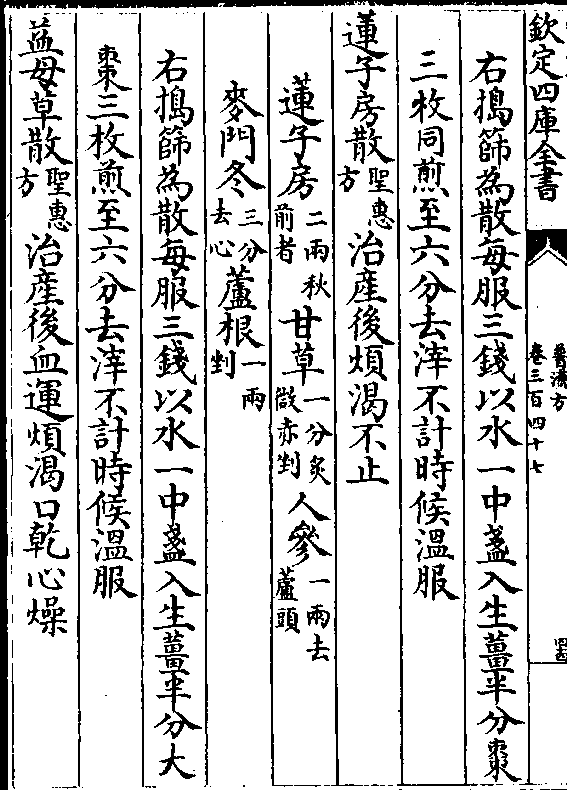 欽定四庫全書
普濟方
卷三百四十七
右搗篩為散每服三錢以水一中盞入生薑半分棗
三枚同煎至六分去滓不計時候溫服
蓮子房散聖惠方治產後煩渴不止
蓮子房二兩秋前者甘草一分炙微赤剉人參一兩去蘆頭
麥門冬三分去心蘆根一兩剉
右搗篩為散每服三錢以水一中盞入生薑半分大
棗三枚煎至六分去滓不計時候溫服
益母草散聖惠方治產後血運煩渴口乾心燥